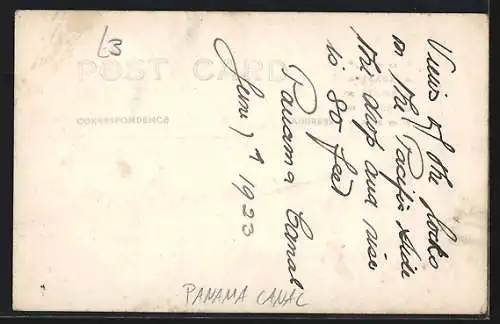 L3
POST CARD
CORRESPONDENCE
ADDRESS
Views of the Locks
on the Pacific side
the drop and rise
is 80 feet
Panama Canal
June 7 1923
PANAMA CANAL